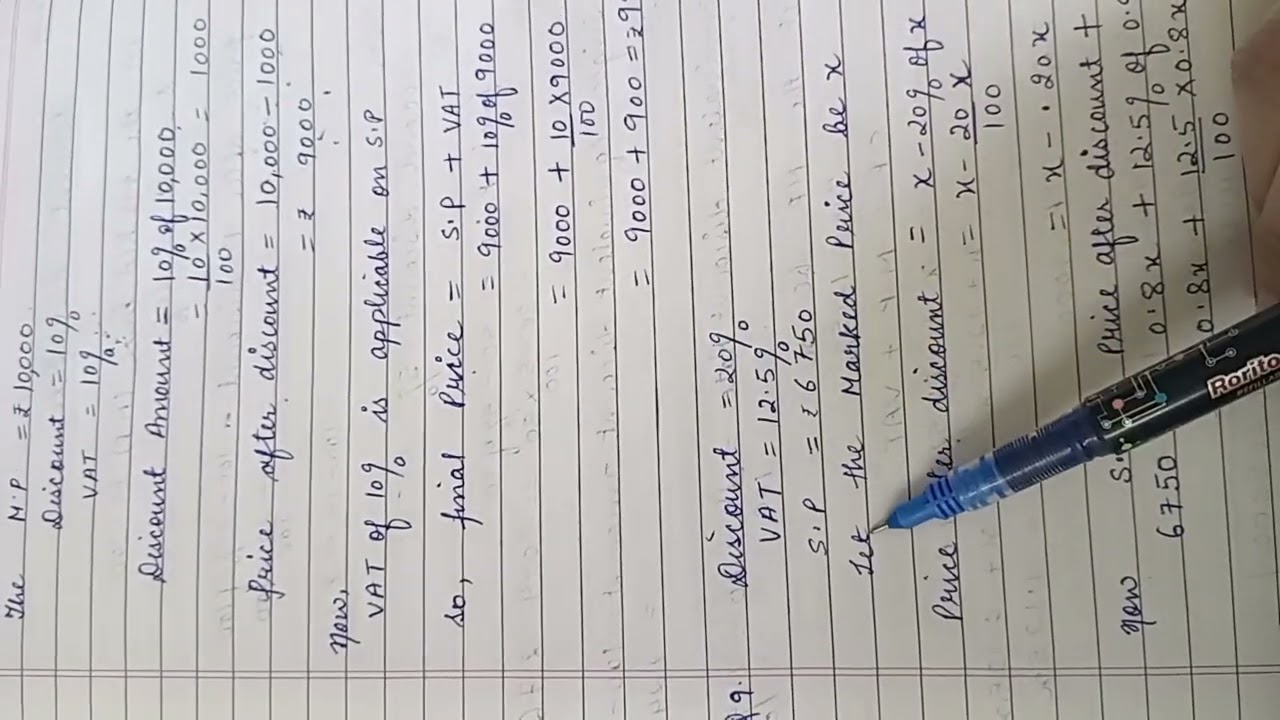 The M.P = ₹ 10,000
Discount = 10%
VAT = 10%
Discount Amount = 10% of 10,000
= 10 × 10,000 = 1000
100
Price after discount = 10,000 - 1000
= ₹ 9000
Now,
VAT of 10% is applicable on S.P
So, final Price = S.P + VAT
= 9000 + 10% of 9000
= 9000 + 10 × 9000
100
= 9000 + 900 = ₹ 9
Q 9. Discount = 20%
VAT = 12.5%
S.P = ₹ 6750
Let the Marked Price be x
Price discount = x - 20% of x
= x - 20 x
100
= x - .20x
Now Price after discount +
6750 0.8x + 12.5% of 0.
0.8x + 12.5 × 0.8x
100
Rorito